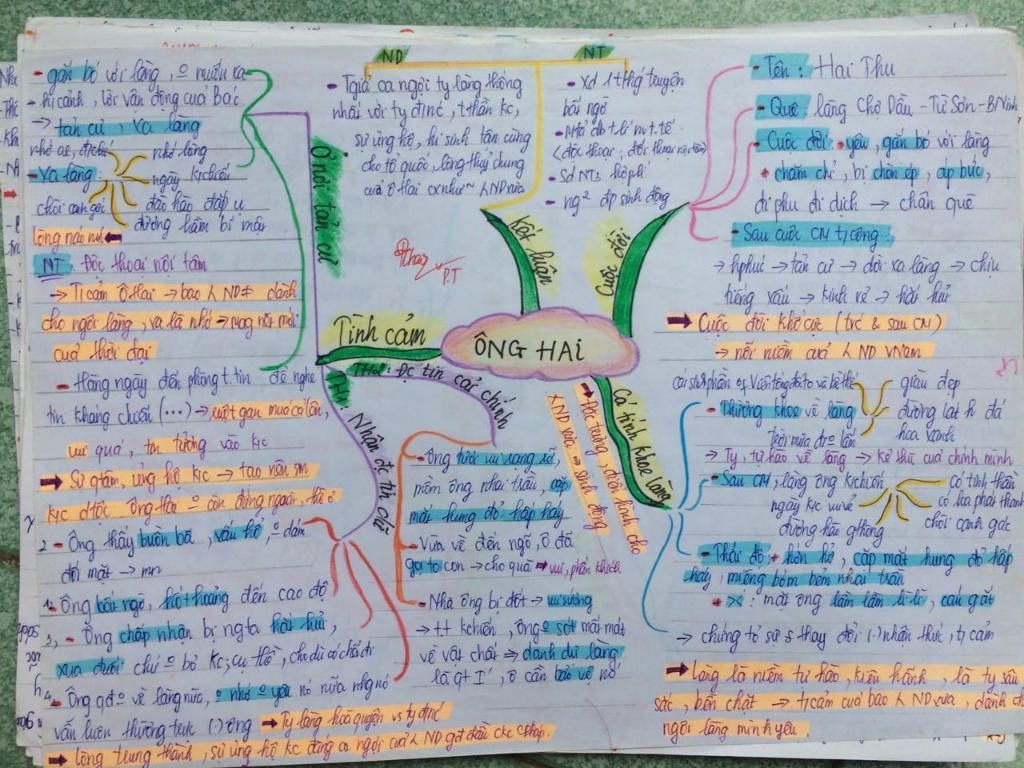 ÔNG HAI
Cuộc đời
- Tên : Hai Thu
- Quê : làng Chợ Dầu - Từ Sơn - B Ninh
- Cuộc đời : + yêu, gắn bó với làng
+ chăm chỉ, bị chèn ép, áp bức,
đi phu đi dịch → chân quê
- Sau cuộc CM T/công :
→ h/phúc → tản cư → dời xa làng → chịu
tiếng xấu → khinh rẻ → hắt hủi
→ Cuộc đời khổ cực (trc & sau CM)
→ nỗi niềm của λ ND VNam
Cá tính khoe làng
→ Đặc trưng, điển hình cho
λ ND xưa → sinh động
- Thường khoe về làng
giàu đẹp
đường lát đá
hoa xanh
→ Ty, tự hào về làng → kẻ thù của chính mình
- Sau CM, làng ông k/chiến
ngày KC
có tinh thần
chòi canh gác
đường hầm
- Thái độ : + hớn hở, cặp mắt hung đỏ hấp
háy, miệng bỏm bẻm nhai trầu
+ >< : mặt ông lầm lầm lì lì, cáu gắt
→ chứng tỏ sự thay đổi (.) nhận thức, t/cảm
→ Làng là niềm tự hào, kiêu hãnh, là ty sâu
sắc, bền chặt → t/cảm của bao λ ND xưa, dành c
ngôi làng mình yêu.
Kết luận
ND
- Tgiả ca ngợi ty làng thống
nhất với ty đ/nc, t/thần kc,
sự ủng hộ, hi sinh tận cùng
cho tổ quốc, lòng thủy chung
của ô Hai cx như ~ λ ND xưa
NT
- Xd 1 t/hg truyện
bất ngờ
- Mtả d/b t/lí n.v t.tế
(độc thoại, đối thoại nội tâm)
- Sd NT
- ng² đp sinh động
Tình cảm
Ở nơi tản cư
- gắn bó với làng, o muốn xa
- hcảnh, lời vận động của Bác
→ tản cư, xa làng
- Xa làng :
nhớ ae, đ/chí
nhớ làng
ngày k/chiến
chòi canh gác
đào hào đắp ụ
đường hầm bí mật
lòng náo nức
NT : Độc thoại nội tâm
→ T/cảm ô Hai → bao λ ND ≠ dành
cho ngôi làng, xa là nhớ →
của thời đại
- Hằng ngày đến phòng t.tin để nghe
tin kháng chiến (...) → ruột gan múa cả lên,
vui quá, tin tưởng vào kc
→ Sự q/tâm, ủng hộ KC → tạo nên sm
TH1: Đc tin cải chính
- Ông tươi vui rạng rỡ,
mồm ông nhai trầu, cặp
mắt hung đỏ hấp háy
- Vừa về đến ngõ, ô đã
gọi to con → cho quà → vui, phấn khích
- Nhà ông bị đốt → vui sướng
→ t.t kchiến, ông o sót mất mát
về vật chất → danh dự làng
là qt I', ô cần bảo vệ nó
Nhận đc tin dữ
2 - Ông thấy buồn bã, xấu hổ, o dám
đối mặt → mn
1. Ông bất ngờ, hốt hoảng đến cao độ
3, - Ông chấp nhận bị ngta hắt hủi,
xua đuổi chứ o bỏ KC, cụ Hồ
4 - Ông qđ o về làng nữa, o nhớ o yêu nó nữa nhg nó
vẫn luôn thường trực (.) ông → Ty làng hoà quyện vs ty đ/nc
→ lòng trung thành, sự ủng hộ kc đáng ca ngợi của λ ND
P.T